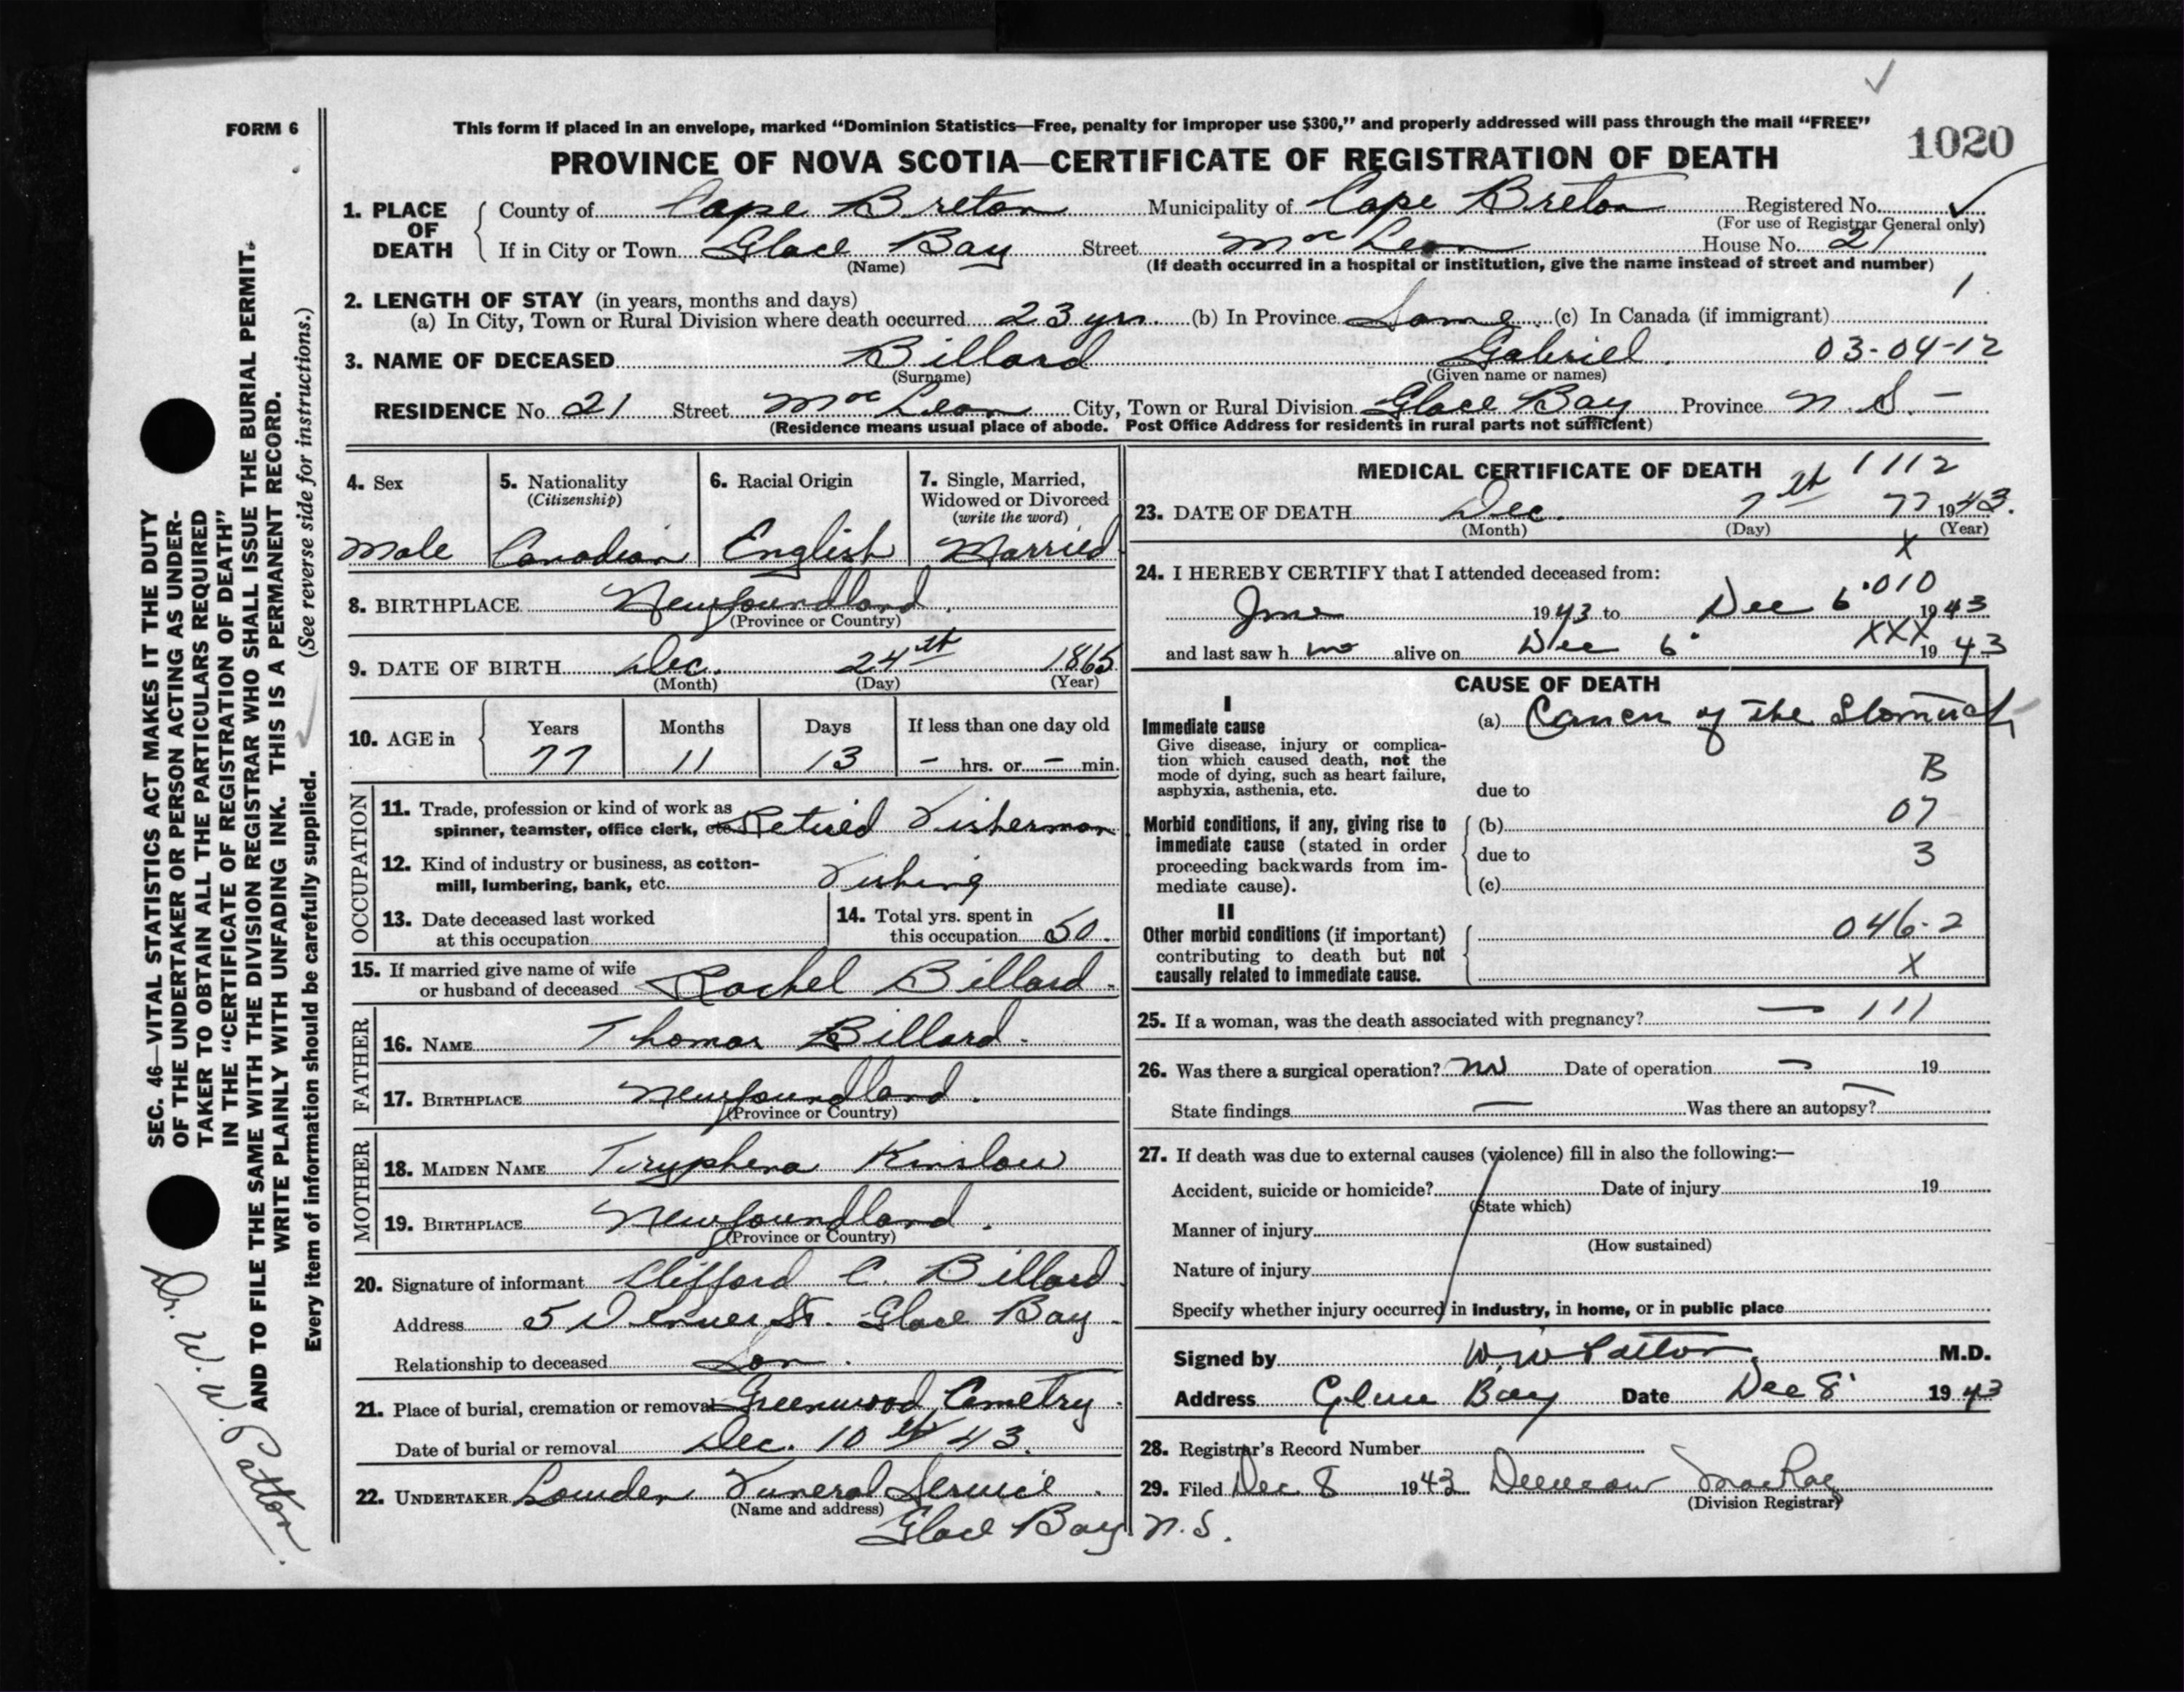 FORM 6
This form if placed in an envelope, marked “Dominion Statistics—Free, penalty for improper use $300,” and properly addressed will pass through the mail “FREE”
1020
PROVINCE OF NOVA SCOTIA—CERTIFICATE OF REGISTRATION OF DEATH
1. PLACE OF DEATH
County of Cape Breton Municipality of Cape Breton Registered No.
(For use of Registrar General only)
If in City or Town Glace Bay Street MacLean House No. 21
(Name) (If death occurred in a hospital or institution, give the name instead of street and number)
1
2. LENGTH OF STAY (in years, months and days)
(a) In City, Town or Rural Division where death occurred 23 yrs (b) In Province Same (c) In Canada (if immigrant)
3. NAME OF DECEASED Billard Gabriel 03-04-12
(Surname) (Given name or names)
RESIDENCE No 21 Street MacLean City, Town or Rural Division Glace Bay Province N. S. -
(Residence means usual place of abode. Post Office Address for residents in rural parts not sufficient)
4. Sex 5. Nationality (Citizenship) 6. Racial Origin 7. Single, Married, Widowed or Divorced (write the word)
Male Canadian English Married
8. BIRTHPLACE Newfoundland.
(Province or Country)
9. DATE OF BIRTH Dec. 24th 1865
(Month) (Day) (Year)
10. AGE in Years Months Days If less than one day old
77 11 13 - hrs. or - min.
OCCUPATION
11. Trade, profession or kind of work as spinner, teamster, office clerk, etc. Retired Fisherman
12. Kind of industry or business, as cotton-mill, lumbering, bank, etc. Fishing
13. Date deceased last worked at this occupation
14. Total yrs. spent in this occupation 50.
15. If married give name of wife or husband of deceased Rachel Billard.
FATHER
16. NAME Thomas Billard.
17. BIRTHPLACE Newfoundland.
(Province or Country)
MOTHER
18. MAIDEN NAME Tryphena Kinslow
19. BIRTHPLACE Newfoundland.
(Province or Country)
20. Signature of informant Clifford C. Billard.
Address 5 St. Glace Bay.
Relationship to deceased Son.
21. Place of burial, cremation or removal Greenwood Cemetry.
Date of burial or removal Dec. 10th 43.
22. UNDERTAKER Lowden Funeral Service.
(Name and address)
Glace Bay N.S.
MEDICAL CERTIFICATE OF DEATH 1112
23. DATE OF DEATH Dec. 7th 77 1943.
(Month) (Day) (Year)
X
24. I HEREBY CERTIFY that I attended deceased from:
010
June 1943 to Dec 6 1943
XXX
and last saw h im alive on Dec 6 1943
CAUSE OF DEATH
I
Immediate cause (a) Cancer of the Stomach
Give disease, injury or complication which caused death, not the mode of dying, such as heart failure, asphyxia, asthenia, etc.
due to B
07
Morbid conditions, if any, giving rise to immediate cause (stated in order proceeding backwards from immediate cause).
(b)
due to 3
(c)
II
Other morbid conditions (if important) contributing to death but not causally related to immediate cause.
046-2
X
25. If a woman, was the death associated with pregnancy? — 111
26. Was there a surgical operation? no Date of operation — 19
State findings — Was there an autopsy? —
27. If death was due to external causes (violence) fill in also the following:—
Accident, suicide or homicide? Date of injury 19
(State which)
Manner of injury
(How sustained)
Nature of injury
Specify whether injury occurred in industry, in home, or in public place
Signed by W. W. Patton M.D.
Address Glace Bay Date Dec 8 1943
28. Registrar's Record Number
29. Filed Dec 8 1943 MacRae
(Division Registrar)
SEC. 46—VITAL STATISTICS ACT MAKES IT THE DUTY
OF THE UNDERTAKER OR PERSON ACTING AS UNDER-
TAKER TO OBTAIN ALL THE PARTICULARS REQUIRED
IN THE “CERTIFICATE OF REGISTRATION OF DEATH”
AND TO FILE THE SAME WITH THE DIVISION REGISTRAR WHO SHALL ISSUE THE BURIAL PERMIT.
WRITE PLAINLY WITH UNFADING INK. THIS IS A PERMANENT RECORD.
Every item of information should be carefully supplied. (See reverse side for instructions.)
Dr. W. W. Patton.